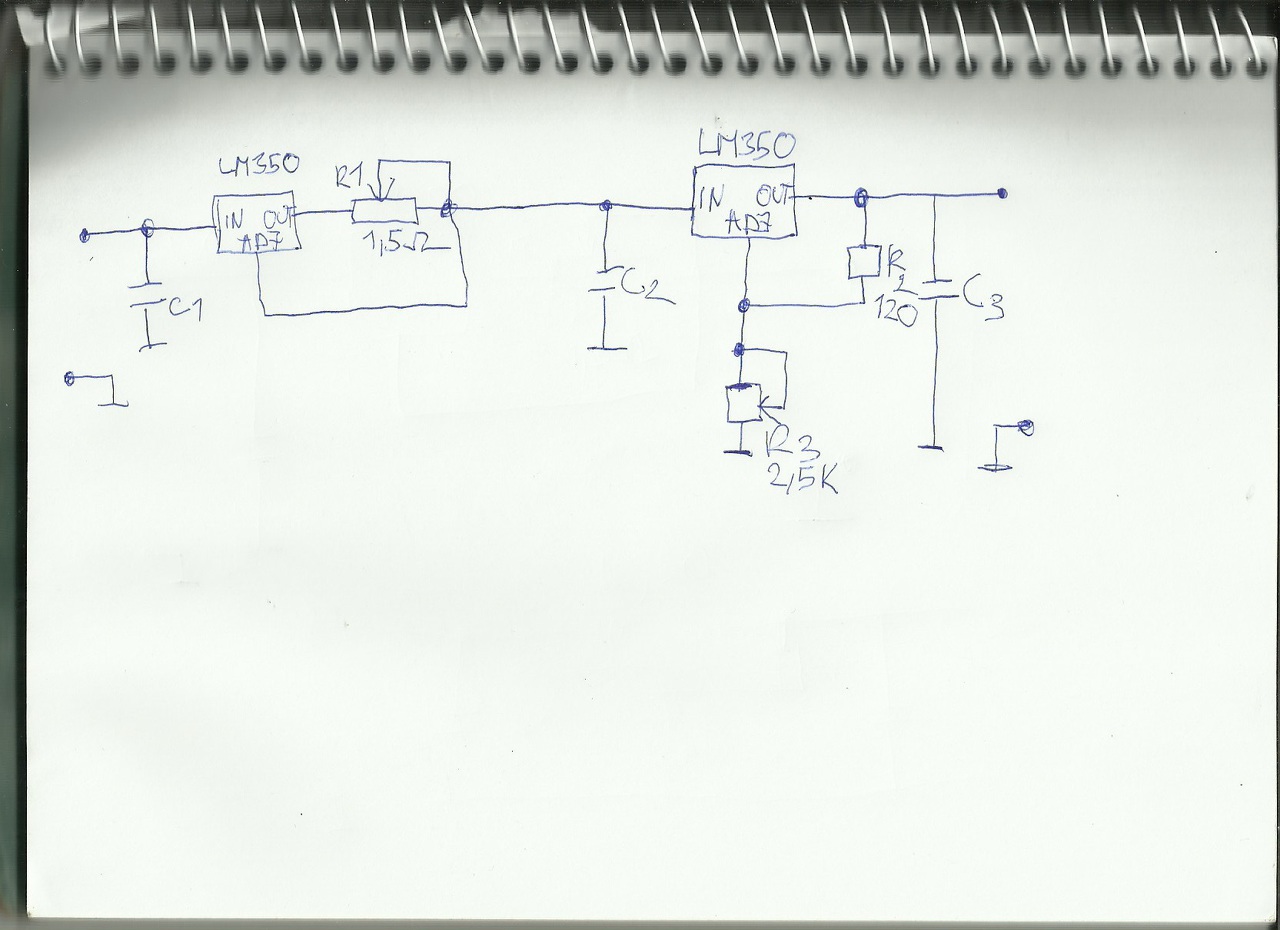 LM350
IN OUT
ADJ
R1
1,5Ω
C1
C2
LM350
IN OUT
ADJ
R2
120
C3
R3
2,5K